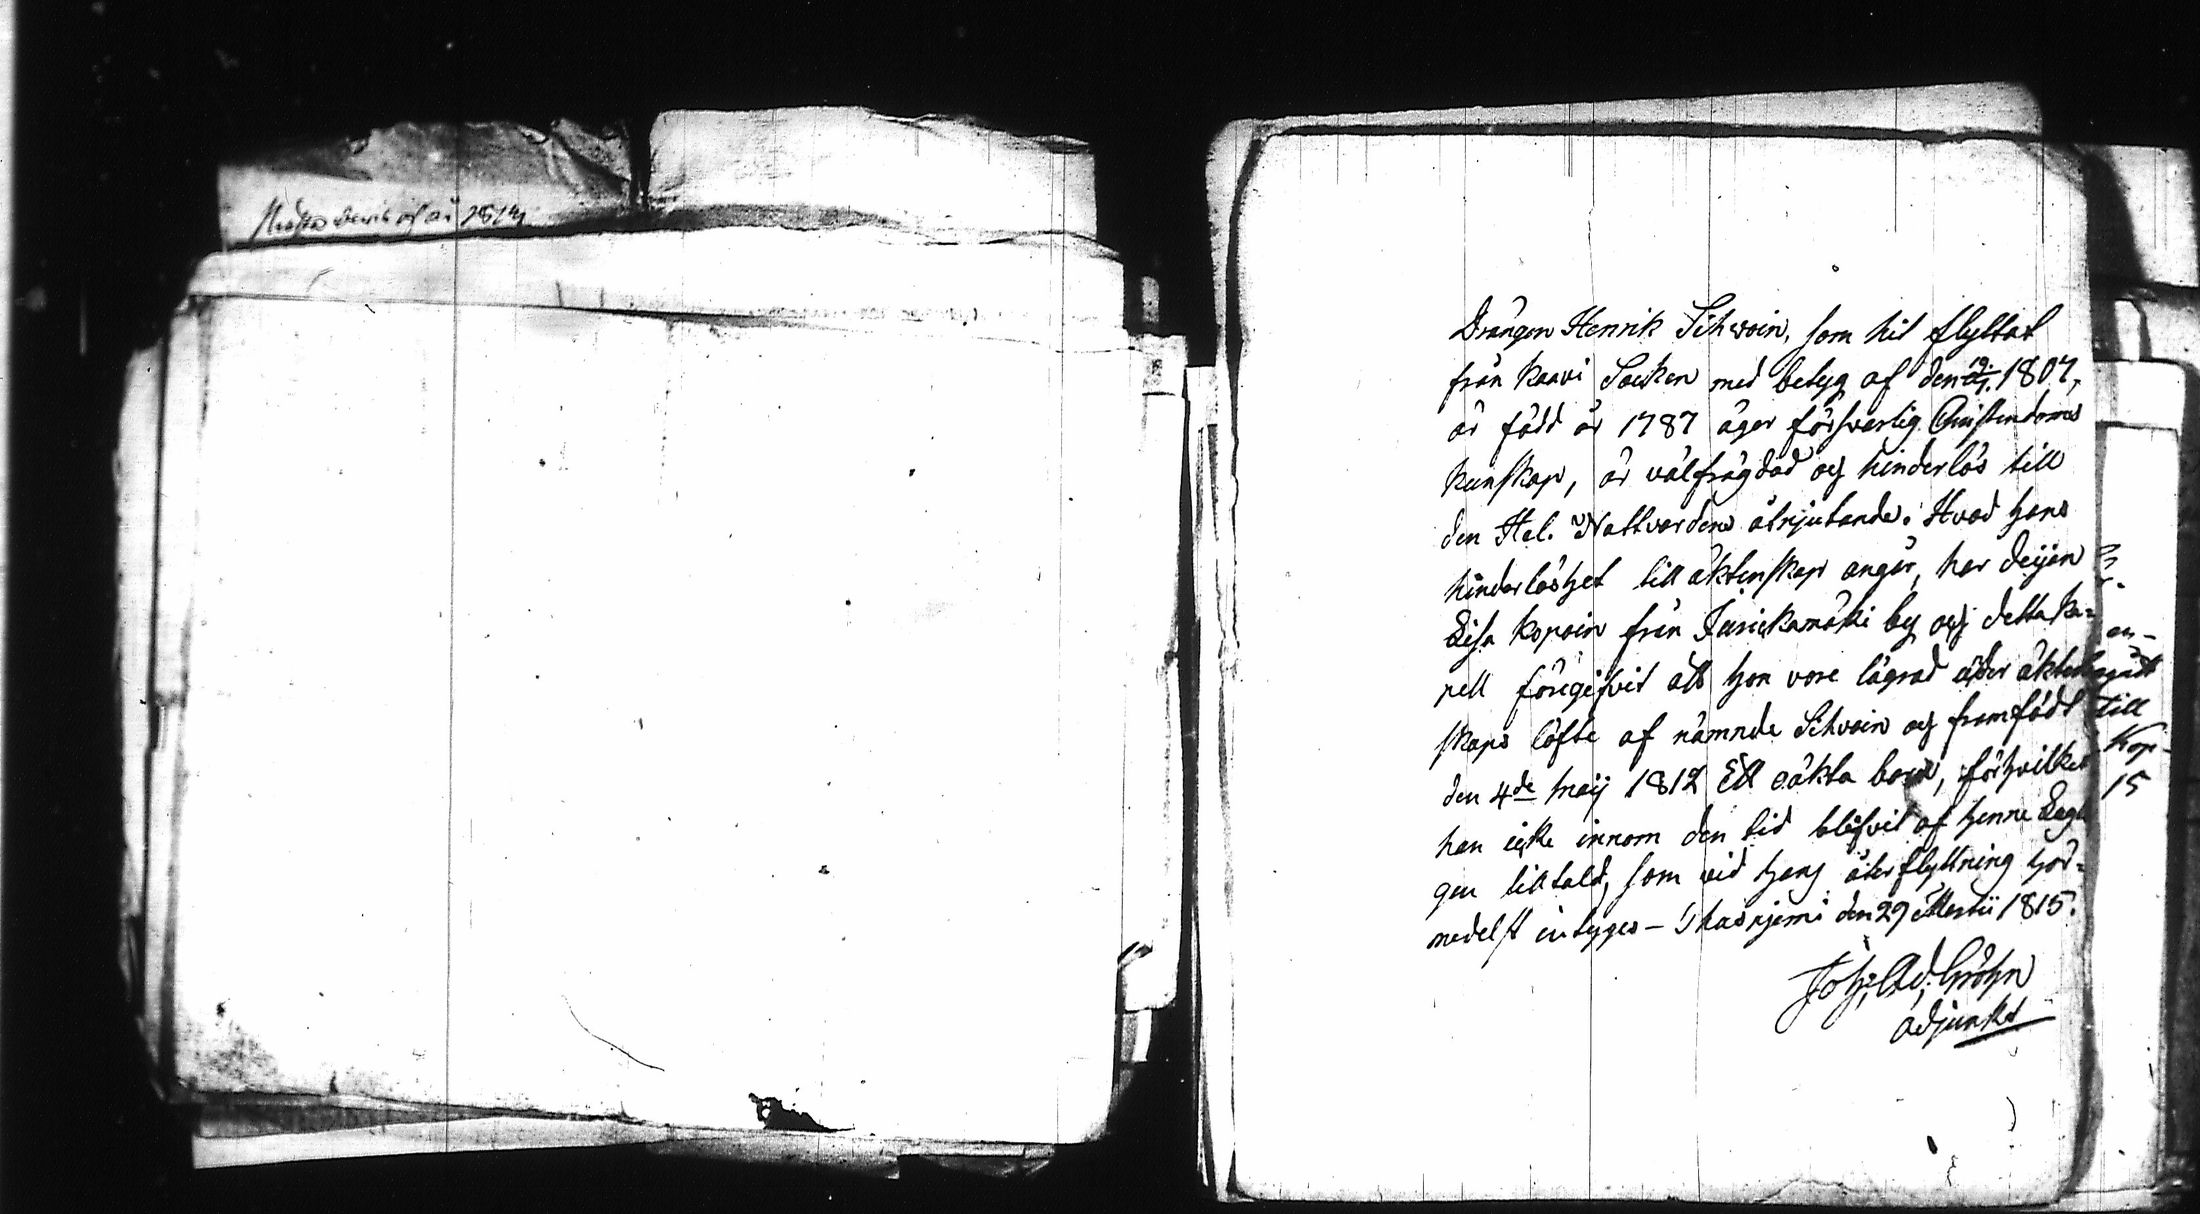 Drängen Henrik Sihvoin, som hit flyttat
från Kaavi Socken med betyg af den 1807,
är född år 1787 äger försvarlig Christendoms
kunskap, är välfrägdad och hinderlös till
den Hel. Nattvardens åtnjutande. Hvad hans
hinderlöshet till äktenskap angår, har Pigan
Lisa Kopoin från by och detta Ka-
pell föregifvit att hon vore lägrad under äkten-
skaps löfte af nämnde Sihvoin och framfödt
den 4de Maij 1812 Ett oäkta barn, förhvilket
han icke innom den tid blifvit af henne Lagli-
gen tilltald, som vid hans återflyttning här-
medelst intygas – den 29 Martii 1815.
Joh: Ad: Gröhn
Adjunkt
till
Kop-
15